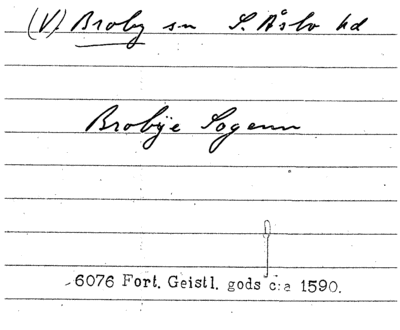 (V) Broby sn V. Åsbo hd
Brobÿe Sogenn
6076 Fort. Geistl. gods c:a 1590.